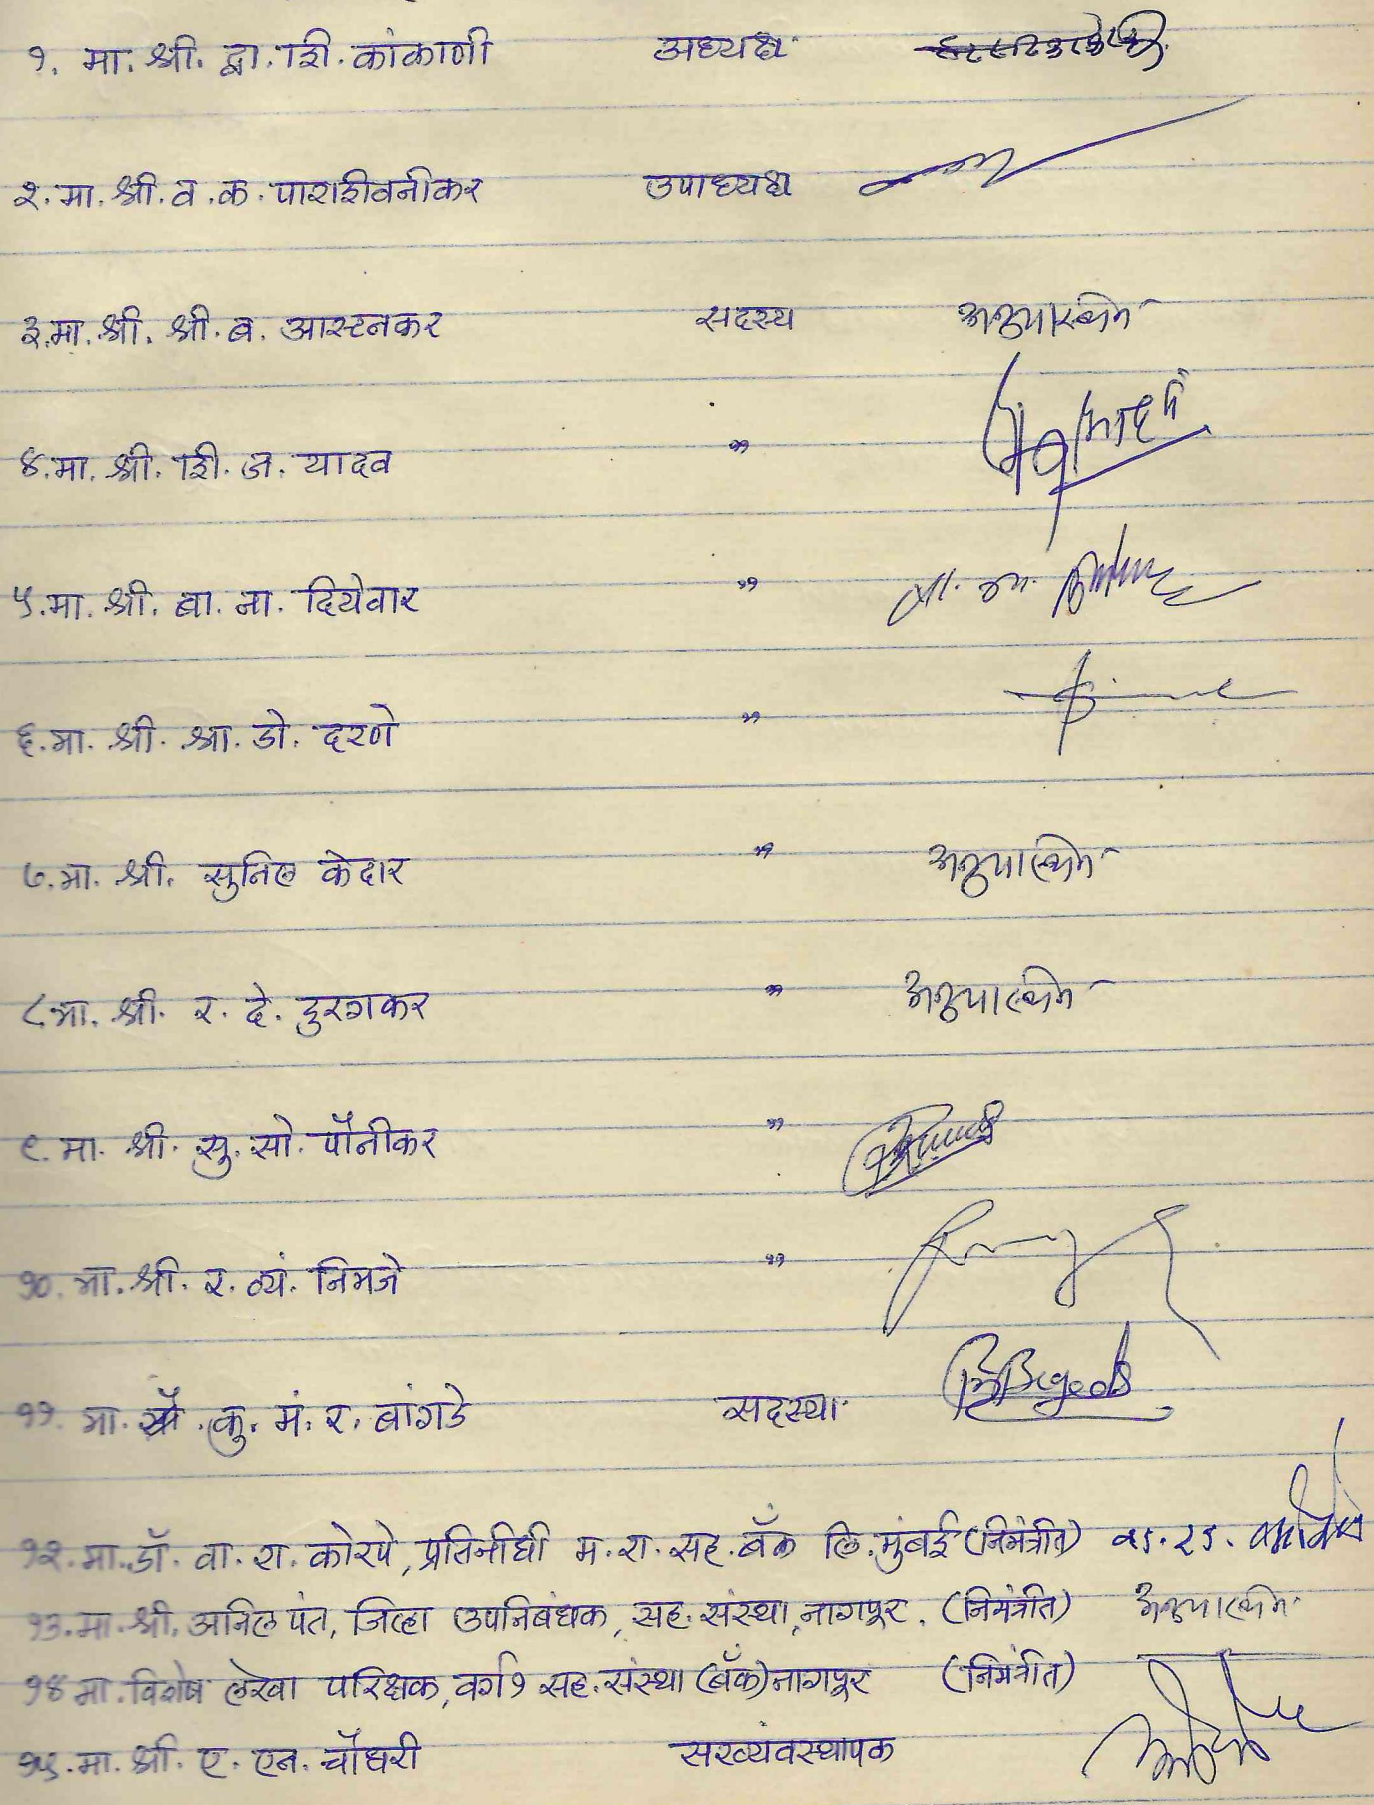 १. मा. श्री. द्वा. शि. कांकाणी अध्यक्ष
२. मा. श्री. व. क. पाराशीवनीकर उपाध्यक्ष
३. मा. श्री. श्री. ब. आस्टनकर सदस्य अनुपस्थित
४. मा. श्री. शि. ज. यादव "
५. मा. श्री. बा. ना. दियेवार " बा. ना.
६. मा. श्री. श्रा. डो. दरणे "
७. मा. श्री. सुनिल केदार " अनुपस्थित
८. मा. श्री. र. दे. दुरगकर " अनुपस्थित
९. मा. श्री. सु. सो. पौनीकर "
१०. मा. श्री. र. व्यं. निमजे "
११. मा. कु. मं. र. बांगडे सदस्या
१२. मा. डॉ. वा. रा. कोरपे, प्रतिनीधी म. रा. सह. बँक लि. मुंबई (निमंत्रीत) वा. रा. कोरपे
१३. मा. श्री. अनिल पंत, जिल्हा उपनिबंधक, सह. संस्था, नागपूर. (निमंत्रीत) अनुपस्थित
१४ मा. विशेष लेखा परिक्षक, वर्ग १ सह. संस्था (बँक) नागपूर (निमंत्रीत)
१५. मा. श्री. ए. एन. चौधरी सरव्यवस्थापक